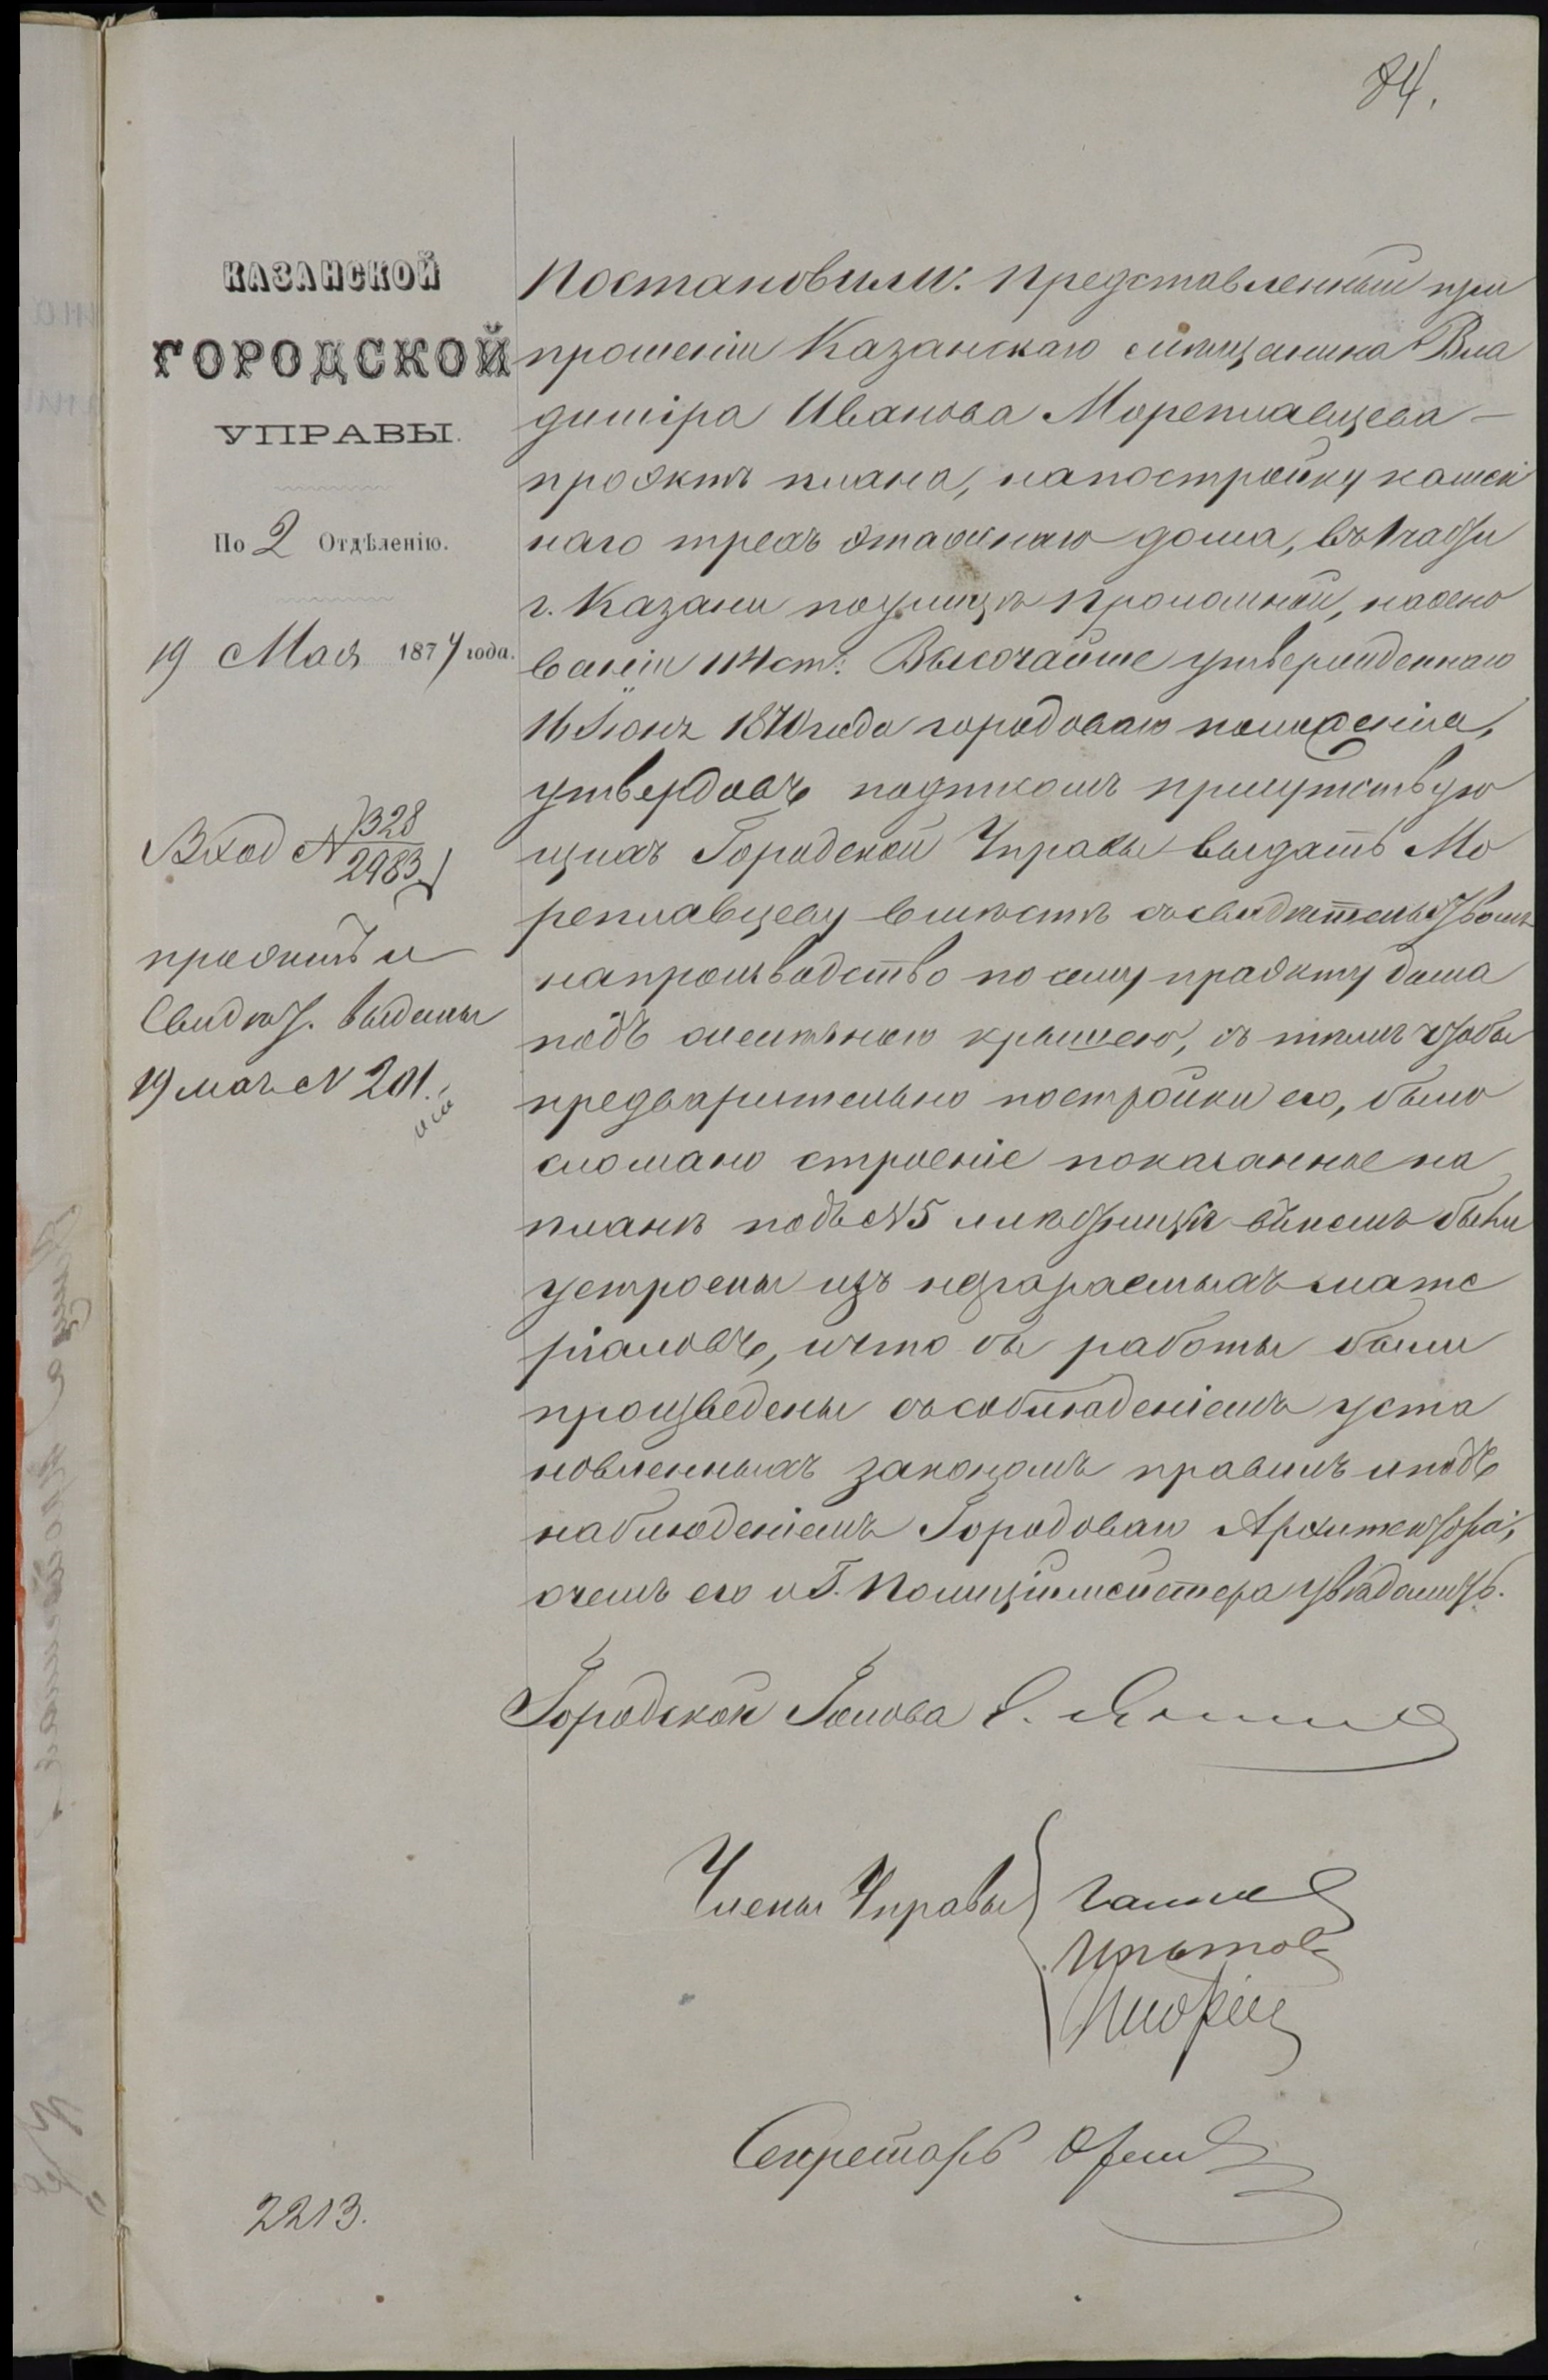 84.
КАЗАНСКОЙ
ГОРОДСКОЙ
УПРАВЫ.
По 2 Отдѣленію.
19 Мая 1874 года.
Вход № 1328
2983
проэктъ и
Свидѣт. выданы
19 мая № 201.
2213.
Постановили: Представленный при
прошеніи Казанскаго мѣщанина Вла
диміра Иванова Мореплавцева —
проэктъ плана, на постройку камен
наго трехъ этажнаго дома, въ 1 части
г. Казани по улицѣ Проломной, на осно
ваніи 114 ст. Высочайше утвержденнаго
16 Іюня 1870 года городоваго положенія,
утвердивъ подписомъ присутствую
щихъ Городской Управы выдать Мо
реплавцеву вмѣстѣ съ свидѣтельствомъ
на производство по сему проэкту дома
подъ желѣзною крышею, съ тѣмъ чтобы
предварительно постройки его, было
сломано строеніе показанное на
планѣ подъ № 5 и лѣстницы въ немъ были
устроены изъ несгораемыхъ мате
ріаловъ, и что бы работы были
произведены съ соблюденіемъ уста
новленныхъ закономъ правилъ и подъ
наблюденіемъ Городоваго Архитектора,
о чемъ его и Г. Полиціймейстера увѣдомить.
Городской Голова
Члены Управы
Секретарь